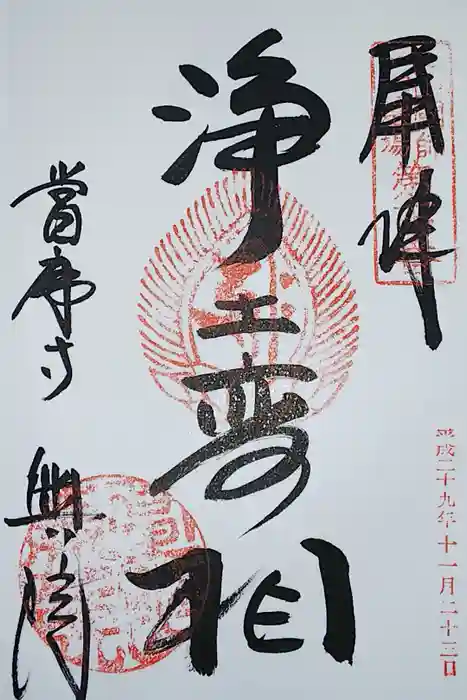 奉拝
平成二十九年十一月二十三日
浄土変相
當麻寺
奥院